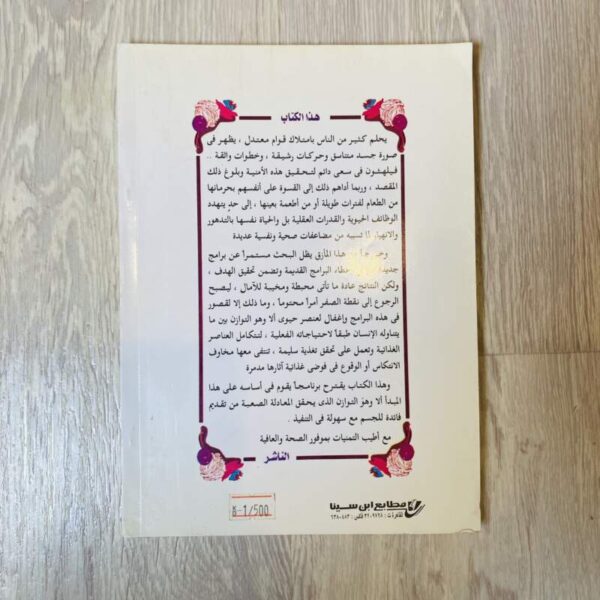 هذا الكتاب
يحلم كثير من الناس بامتلاك قوام معتدل ، يظهر فى
صورة جسد متناسق وحركات رشيقة ، وخطوات واثقة ..
فيلهثون فى سعى دائم لتحقيق هذه الأمنية وبلوغ ذلك
المقصد ، وربما أداهم ذلك إلى القسوة على أنفسهم بحرمانها
من الطعام لفترات طويلة أو من أطعمة بعينها ، إلى حدٍ يتهدد
الوظائف الحيوية والقدرات العقلية بل والحياة نفسها بالتدهور
والانهيار لما تسببه من مضاعفات صحية ونفسية عديدة
هذا المأزق يظل البحث مستمراً عن برامج
البرامج القديمة وتضمن تحقيق الهدف ،
ولكن النتائج عادة ما تأتى محبطة ومخيبة للآمال ، ليصبح
الرجوع إلى نقطة الصفر أمراً محتوماً ، وما ذلك إلا لقصور
فى هذه البرامج وإغفال لعنصر حيوى ألا وهو التوازن بين ما
يتناوله الإنسان طبقاً لاحتياجاته الفعلية ، لتتكامل العناصر
الغذائية وتعمل على تحقق تغذية سليمة ، تنتفى معها مخاوف
الانتكاس أو الوقوع فى فوضى غذائية آثارها مدمرة
وهذا الكتاب يقترح برنامجاً يقوم فى أساسه على هذا
المبدأ ألا وهو التوازن الذى يحقق المعادلة الصعبة من تقديم
فائدة للجسم مع سهولة فى التنفيذ .
مع أطيب التمنيات بموفور الصحة والعافية
الناشر
مطابع ابن سينا
1/500